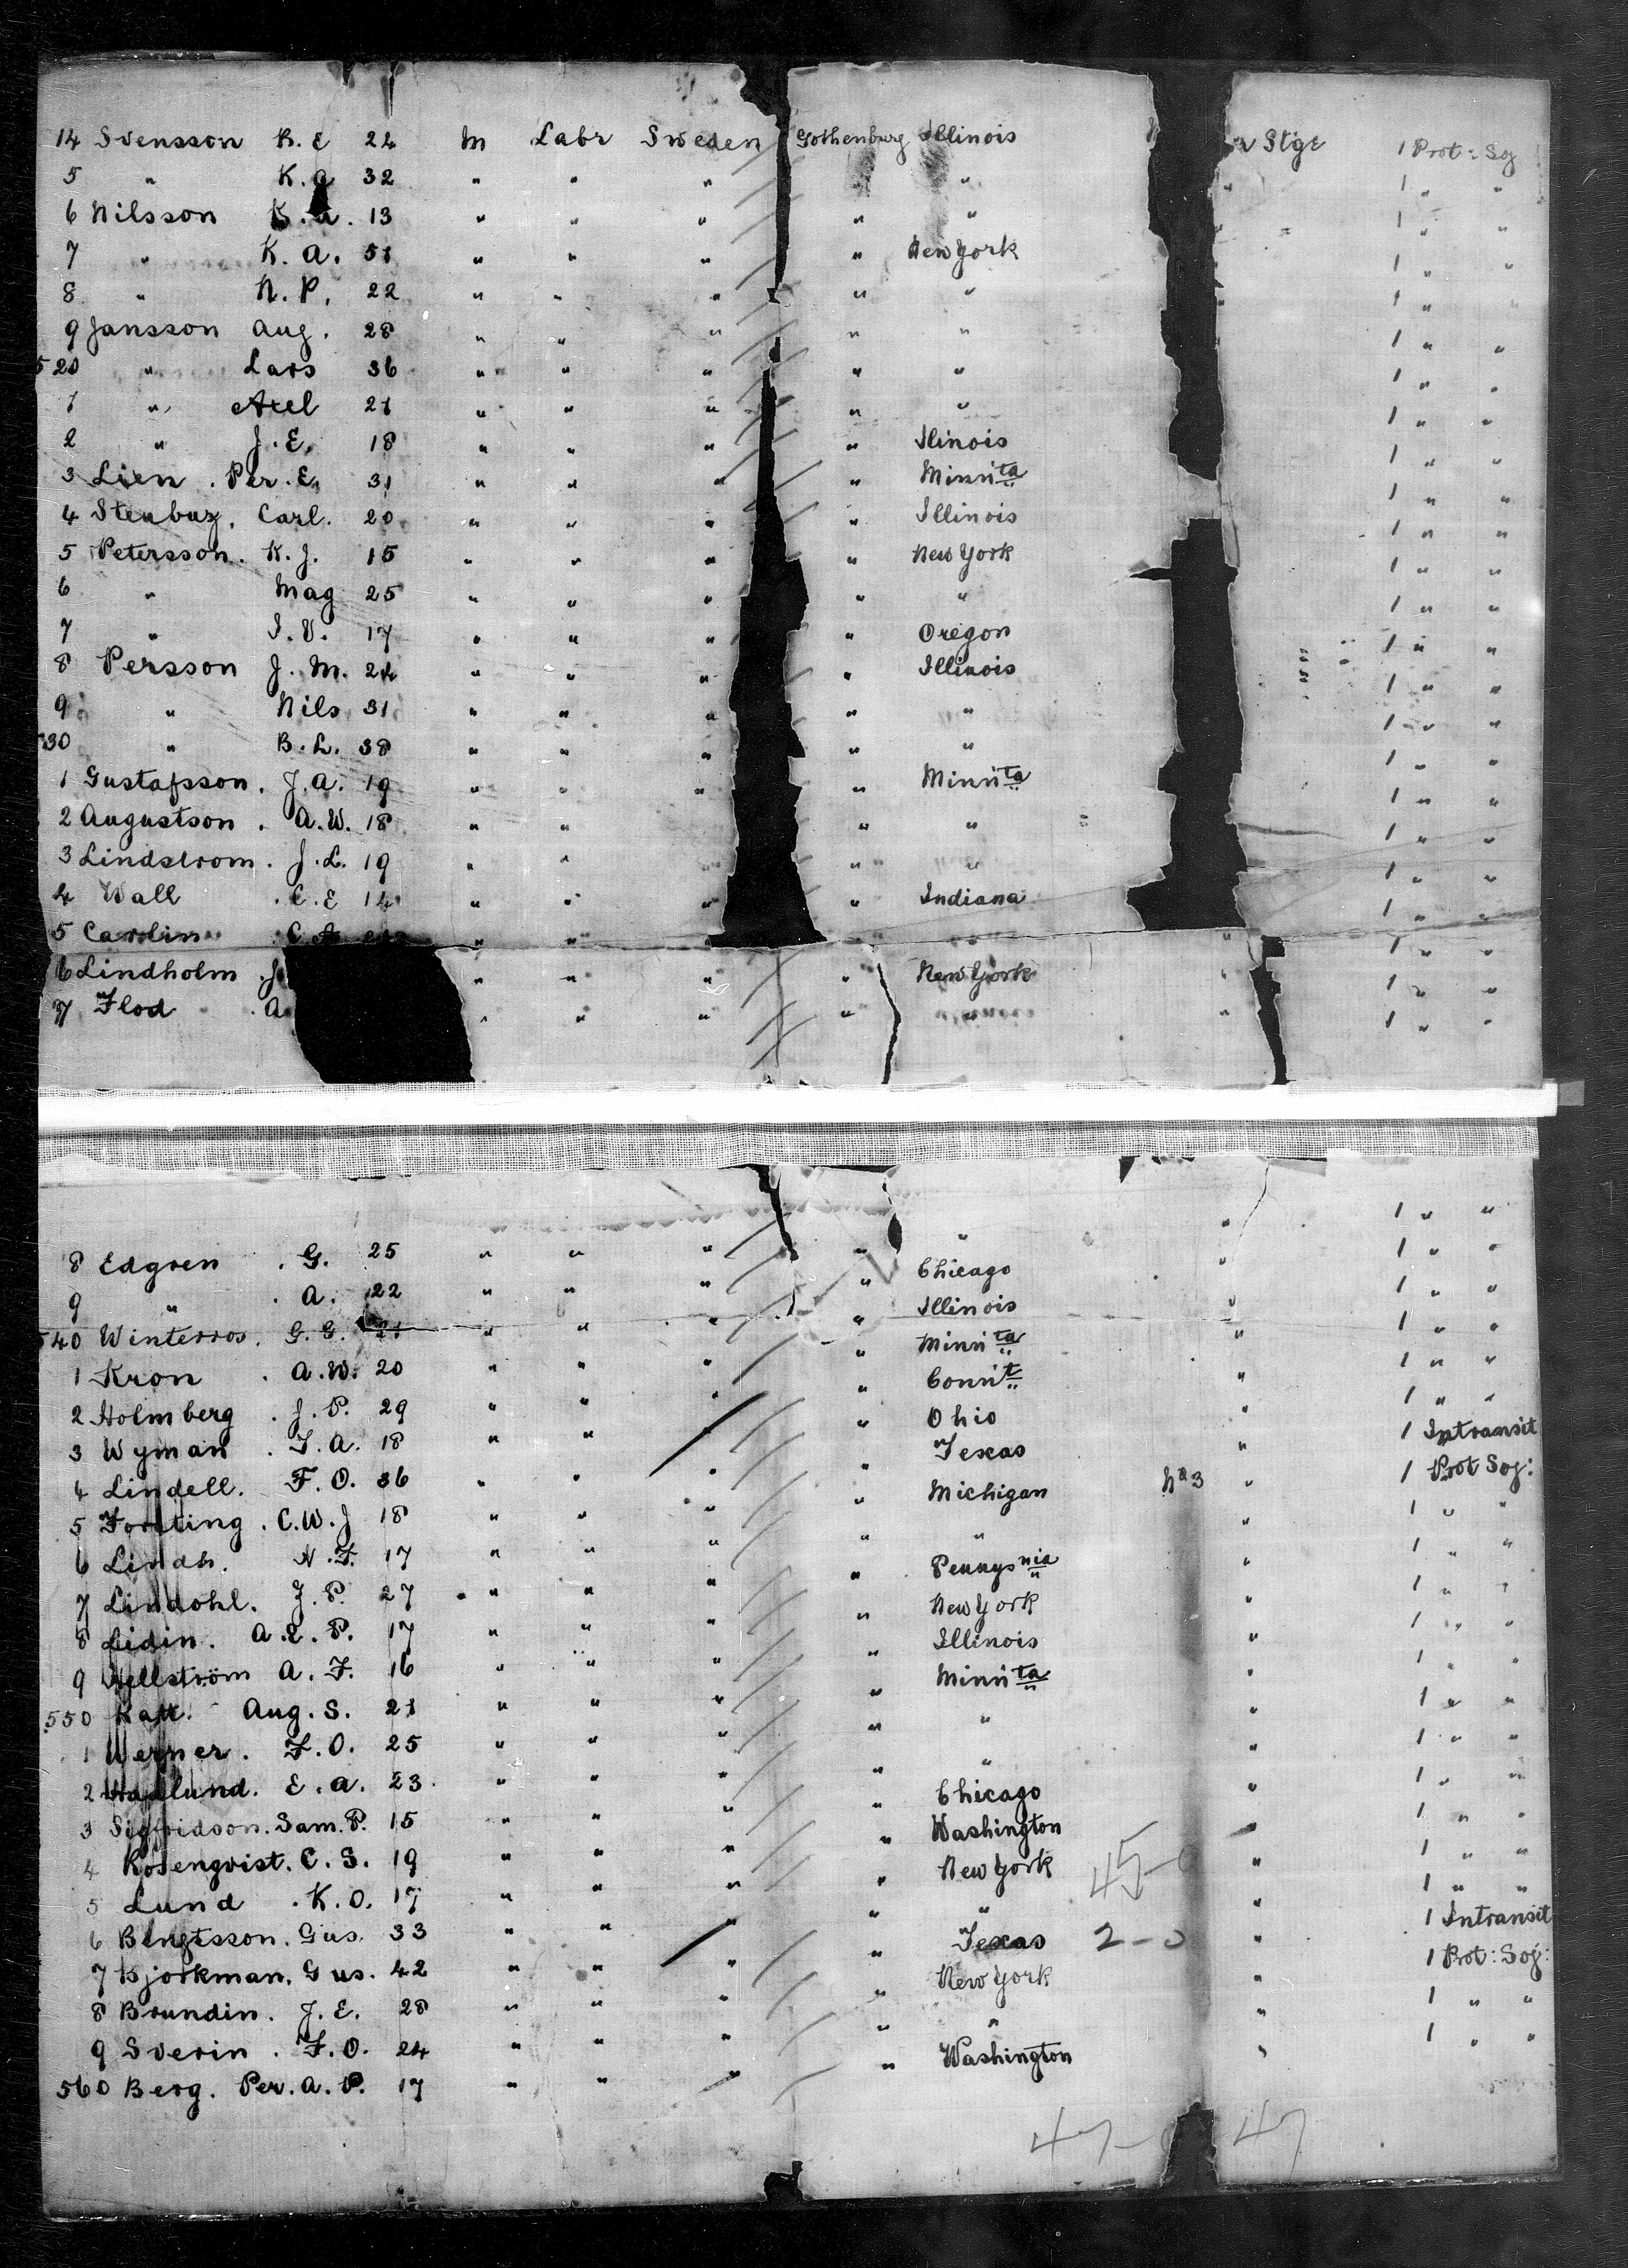 14 Svensson B.E 22 m Labr Sweden Gothenburg Illinois Stge 1 Prot: Soj
5 " K.a 32 " " " " " " 1 " "
6 Nilsson K.a. 13 " " " " " 1 " "
7 " K. A. 51 " " " " New York 1 " "
8 " N. P. 22 " " " " " 1 " "
9 Jansson Aug. 28 " " " " " 1 " "
520 " Lars 36 " " " " " 1 " "
1 " Axel 21 " " " " " 1 " "
2 " J.E. 18 " " " " Ilinois 1 " "
3 Lien. Per.E. 31 " " " " Minnta 1 " "
4 Stenburg. Carl. 20 " " " " Illinois 1 " "
5 Petersson. K.J. 15 " " " " New York 1 " "
6 " Mag 25 " " " " " 1 " "
7 " I.V. 17 " " " " Oregon 1 " "
8 Persson J. M. 24 " " " " Illinois 1 " "
9 " Nils 31 " " " " " 1 " "
530 " B.L. 38 " " " " " 1 " "
1 Gustafsson. J.A. 19 " " " " Minnta 1 " "
2 Augustson. A.W. 18 " " " " 1 " "
3 Lindstrom. J.L. 19 " " " " 1 " "
4 Wall .C.E 14 " " " " Indiana 1 " "
5 Carolin .C " " " " " 1 " "
6 Lindholm .J " " " " New York " 1 " "
7 Flod .A " " " " " " 1 " "
8 Edgren .G. 25 " " " " " " 1 " "
9 " .A. 22 " " " " Chicago " 1 " "
540 Winterros. G.G. 21 " " " " Illinois " 1 " "
1 Kron .A.W. 20 " " " " Minnta " 1 " "
2 Holmberg .J.P. 29 " " " Connt " 1 " "
3 Wyman .F.A. 18 " " " Ohio " 1 " "
4 Lindell. F.O. 36 " " " " Texas " 1 Intransit
5 Forsting .C.W.J 18 " " " " Michigan No3 " 1 Prot Soj:
6 Lindh. N.F. 17 " " " " " " 1 " "
7 Lindohl. J.P. 27 " " " " Pennysnia " 1 " "
8 Lidin. A.E.P. 17 " " " " New York " 1 " "
9 Hellström A.F. 16 " " " " Illinois " 1 " "
550 Aug. S. 21 " " " " Minnta " 1 " "
1 Werner. F.O. 25 " " " " " " 1 " "
2 Hadlund. E.a. 23. " " " " " " 1 " "
3 Sigfridson. Sam.P. 15 " " " " Chicago " 1 " "
4 Rosenqvist. C.S. 19 " " " " Washington 1 " "
5 Lund .K.O. 17 " " " " New York 45- " 1 " "
6 Bengtsson. Gus. 33 " " " " " " 1 " "
7 Bjorkman. Gus. 42 " " " " Texas 2- " 1 Intransit
8 Brundin. J.E. 28 " " " " New York " 1 Prot: Soj:
9 Sverin. F.O. 24 " " " " " " 1 " "
560 Berg. Per.A.P. 17 " " " " Washington " 1 " "
47- 47